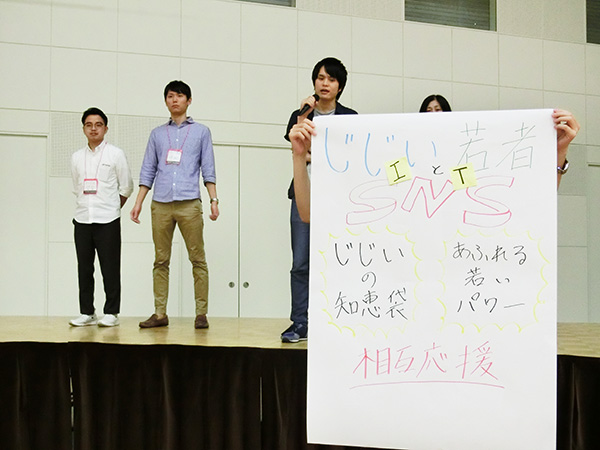 じじいと若者
I T
SNS
じじい
の
知恵袋
あふれる
若い
パワー
相互応援